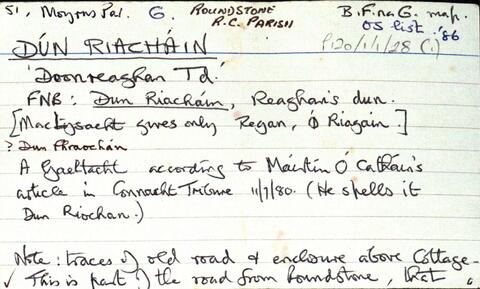 51, Moyrus Par. G. ROUNDSTONE R.C. PARISH B.F.na G. map.
OS list. '86
P120/1/1/28 (1)
DÚN RIACHÁIN
'Doonreaghan Td.'
FNB: Dun Riacháin, Reaghan's dun.
[MacLysacht gives only Regan, Ó Riagain.]
? Dun Phraocháin
A Gaeltacht according to Máirtín Ó Catháin's
article in Connacht Tribune 11/7/80. (He spells it
Dun Riochan.)
Note: traces of old road & enclosure above Cottage -
✓ This is part of the road from Roundstone, that